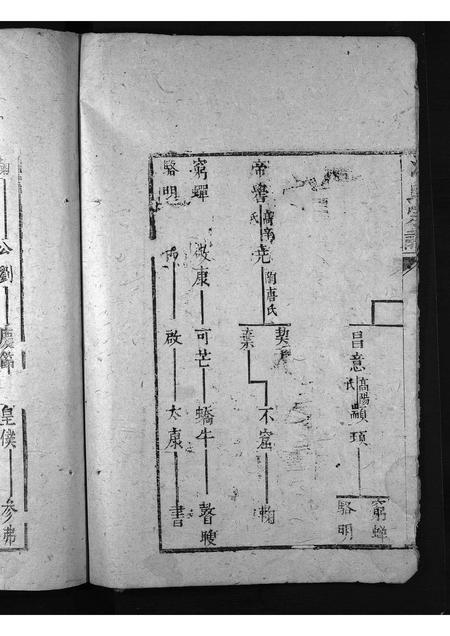 昌意
高陽氏
顓頊
窮蟬
駱明
帝嚳
高辛氏
堯
陶唐氏
契
棄
不窋
鞠
窮蟬
敬康
可芒
蟜牛
瞽瞍
駱明
啟
太康
公劉
慶節
皇僕
參弗